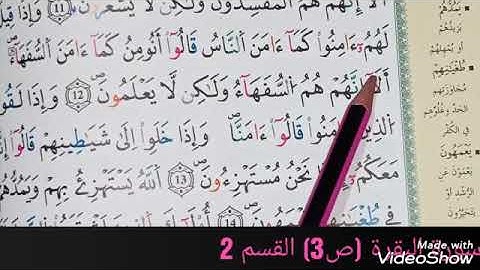 إِنَّهُمْ هُمُ الْمُفْسِدُونَ وَلَكِن لَّا يَشْعُرُونَ 11 وَإِذَا قِيلَ
لَهُمُۥٓ ءَامِنُوا كَمَآ ءَامَنَ النَّاسُ قَالُوٓا أَنُومِنُ كَمَآ ءَامَنَ السُّفَهَآءُ
أَلَآ إِنَّهُمْ هُمُ السُّفَهَآءُ وَلَكِن لَّا يَعْلَمُونَ 12 وَإِذَا لَقُوا
الذِينَ ءَامَنُوا قَالُوٓا ءَامَنَّا وَإِذَا خَلَوِا اِلَىٰ شَيَٰطِينِهِمْ قَالُوٓا
مَعَكُمُۥٓ نَحْنُ مُسْتَهْزِءُونَ 13 اللَّهُ يَسْتَهْزِئُ بِهِمْ وَيَمُدُّهُمْ
فِي طُغْيَٰنِهِمْ 14
يَمُدُّهُمْ
أو يمهلهم
طُغْيَٰنِهِمْ
مجاوزتهم
الحد وغلوهم
في الكفر
يَعْمَهُونَ
يعمون عن
الرشد أو
يتحيرون
سورة البقرة (ص3) القسم 2
Made with
VideoShow